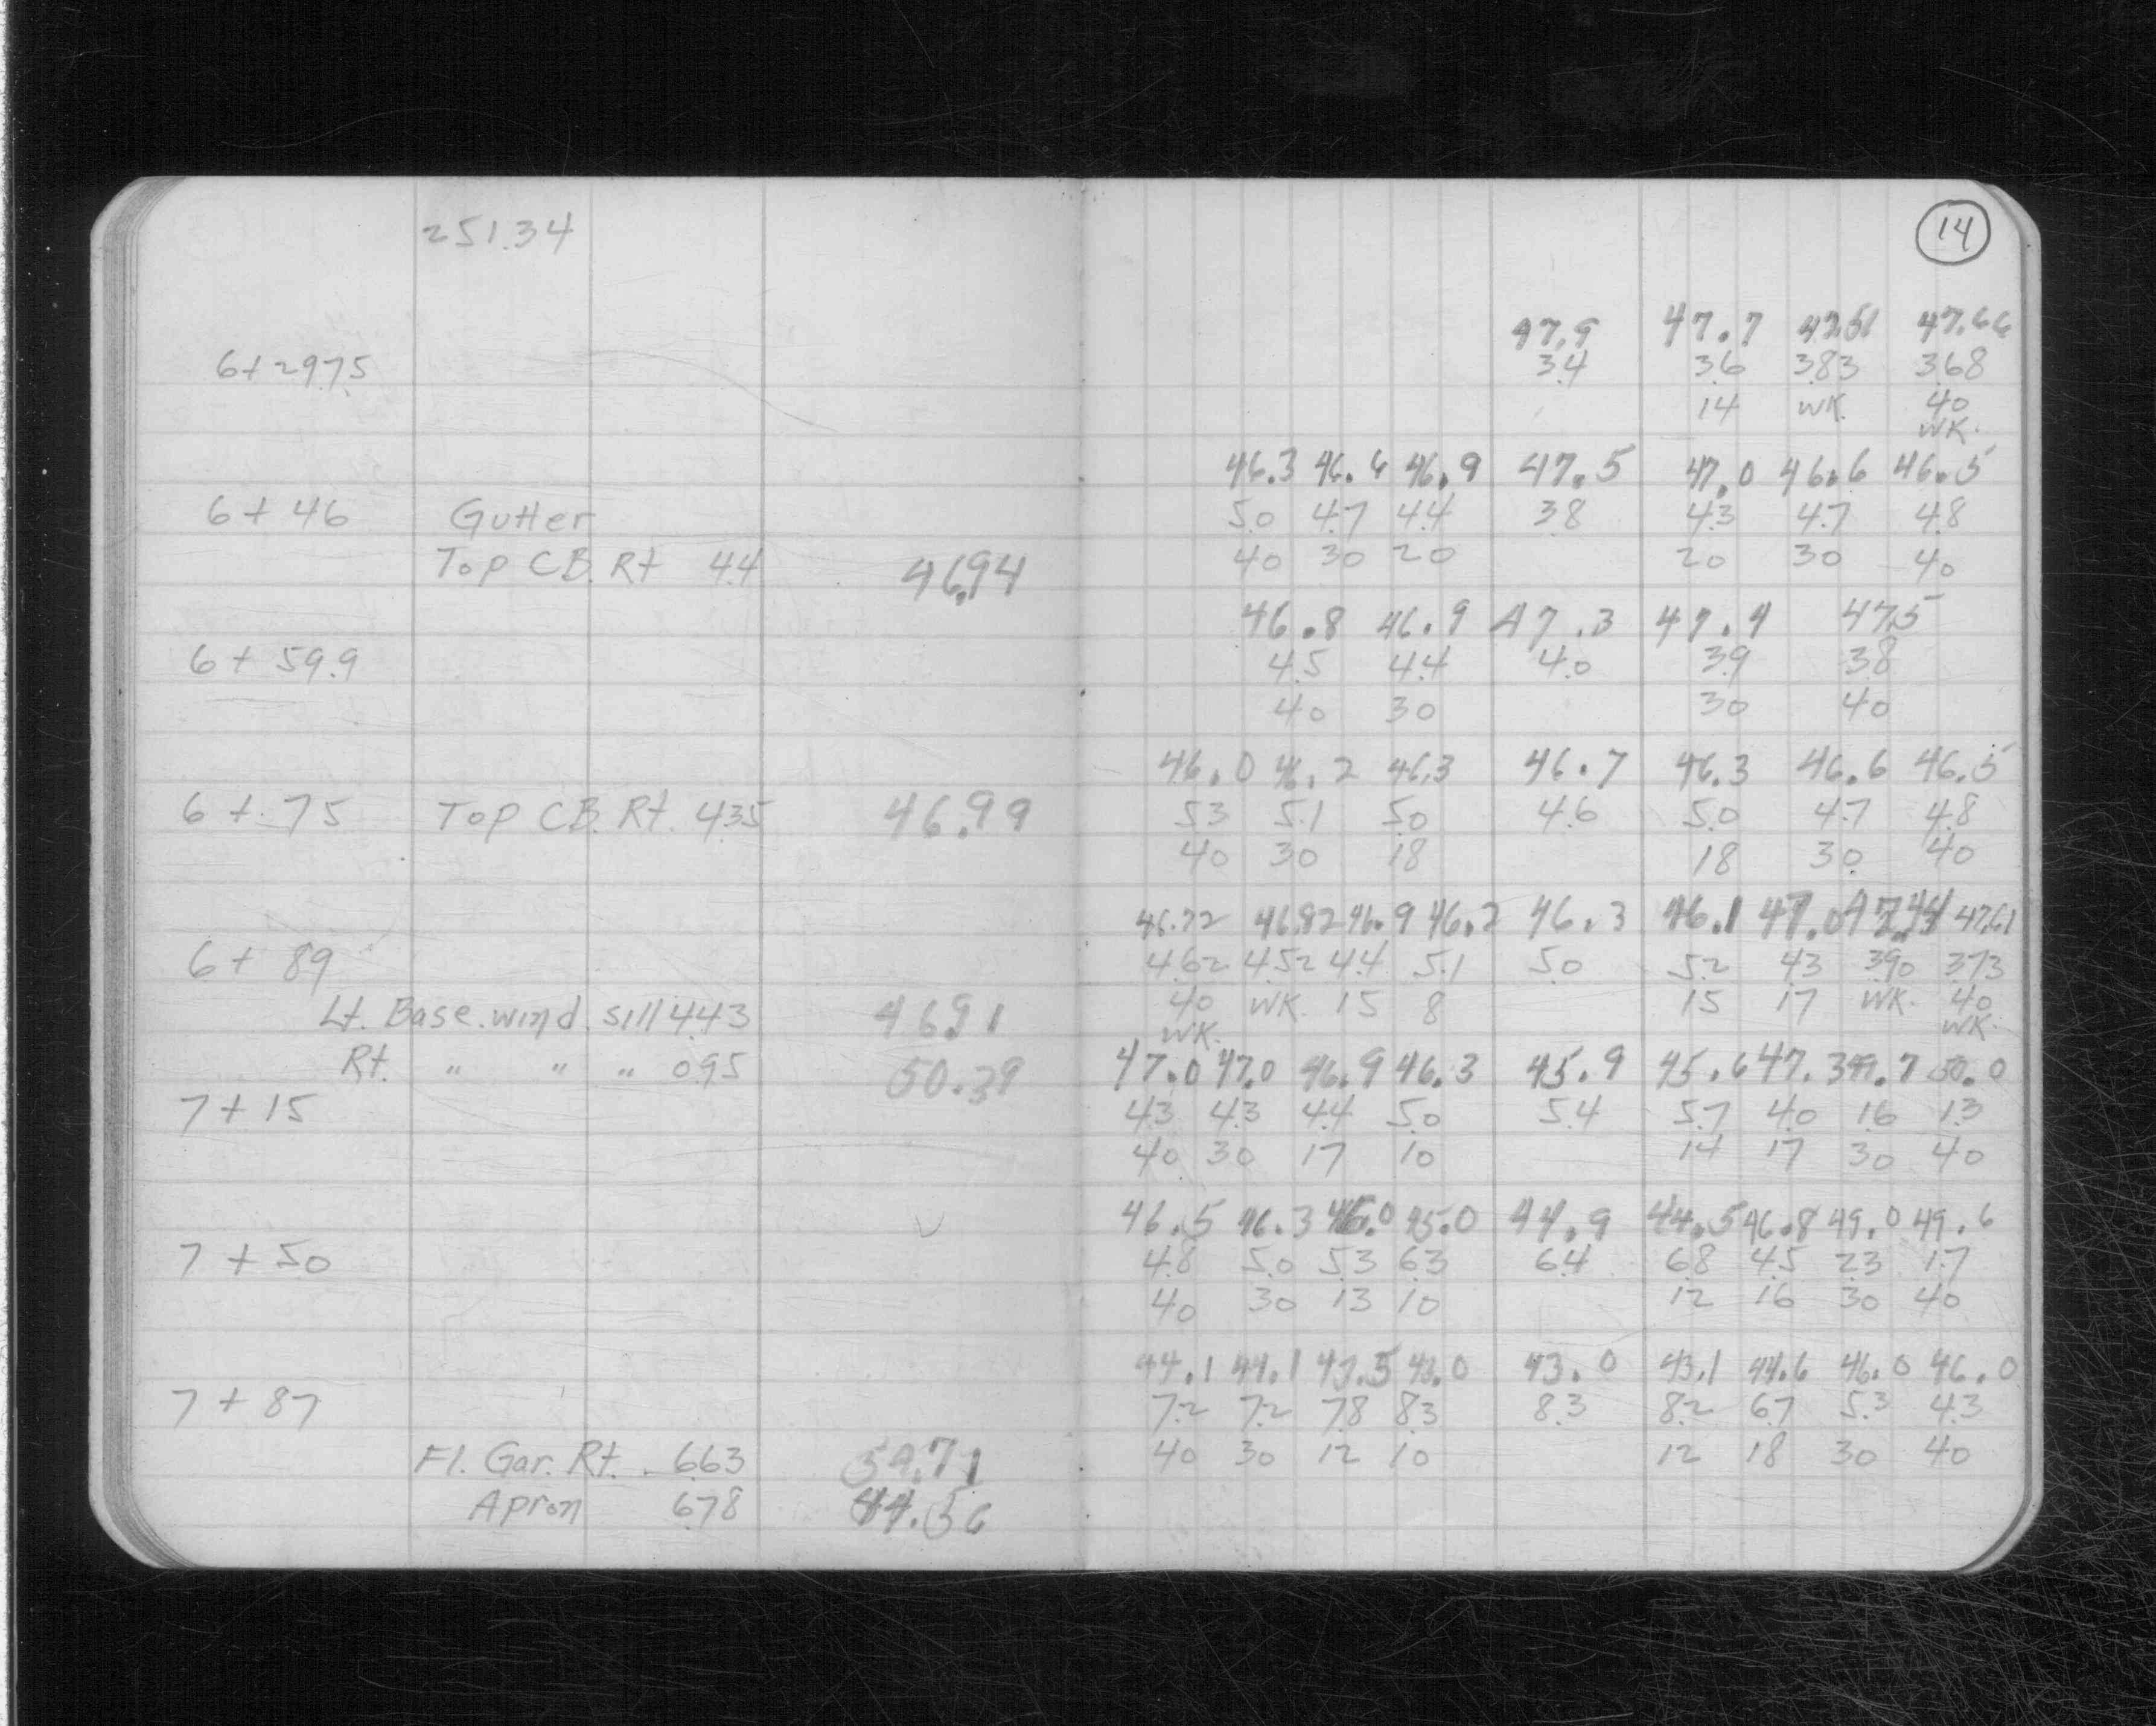 251.34
14
47.9 47.7 47.51 47.66
6+29.75 3.4 3.6 3.83 3.68
14 WK. 40
WK.
46.3 46.6 46.9 47.5 47.0 46.6 46.5
6+46 Gutter 5.0 4.7 4.4 3.8 4.3 4.7 4.8
Top CB. Rt 4.4 46.94 40 30 20 20 30 40
46.8 46.9 47.3 47.4 47.5
6+59.9 4.5 4.4 4.0 3.9 3.8
40 30 30 40
46.0 46.2 46.3 46.7 46.3 46.6 46.5
6+75 Top CB. Rt. 4.35 46.99 5.3 5.1 5.0 4.6 5.0 4.7 4.8
40 30 18 18 30 40
46.72 46.82 46.9 46.2 46.3 46.1 47.0 47.44 47.61
6+89 4.62 4.52 4.4 5.1 5.0 5.2 4.3 3.90 3.73
Lt. Base. wind. sill 4.43 46.91 40 WK. 15 8 15 17 WK. 40
WK. WK.
Rt. " " " 0.95 50.39 47.0 47.0 46.9 46.3 45.9 45.6 47.3 49.7 50.0
7+15 4.3 4.3 4.4 5.0 5.4 5.7 4.0 1.6 1.3
40 30 17 10 14 17 30 40
46.5 46.3 46.0 45.0 44.9 44.5 46.8 49.0 49.6
7+50 4.8 5.0 5.3 6.3 6.4 6.8 4.5 2.3 1.7
40 30 13 10 12 16 30 40
44.1 44.1 43.5 43.0 43.0 43.1 44.6 46.0 46.0
7+87 7.2 7.2 7.8 8.3 8.3 8.2 6.7 5.3 4.3
Fl. Gar. Rt. 6.63 40 30 12 10 12 18 30 40
Apron 6.78 44.56